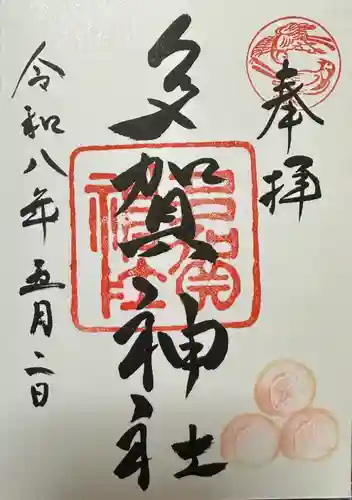 奉拝
多賀神社
令和八年五月二日